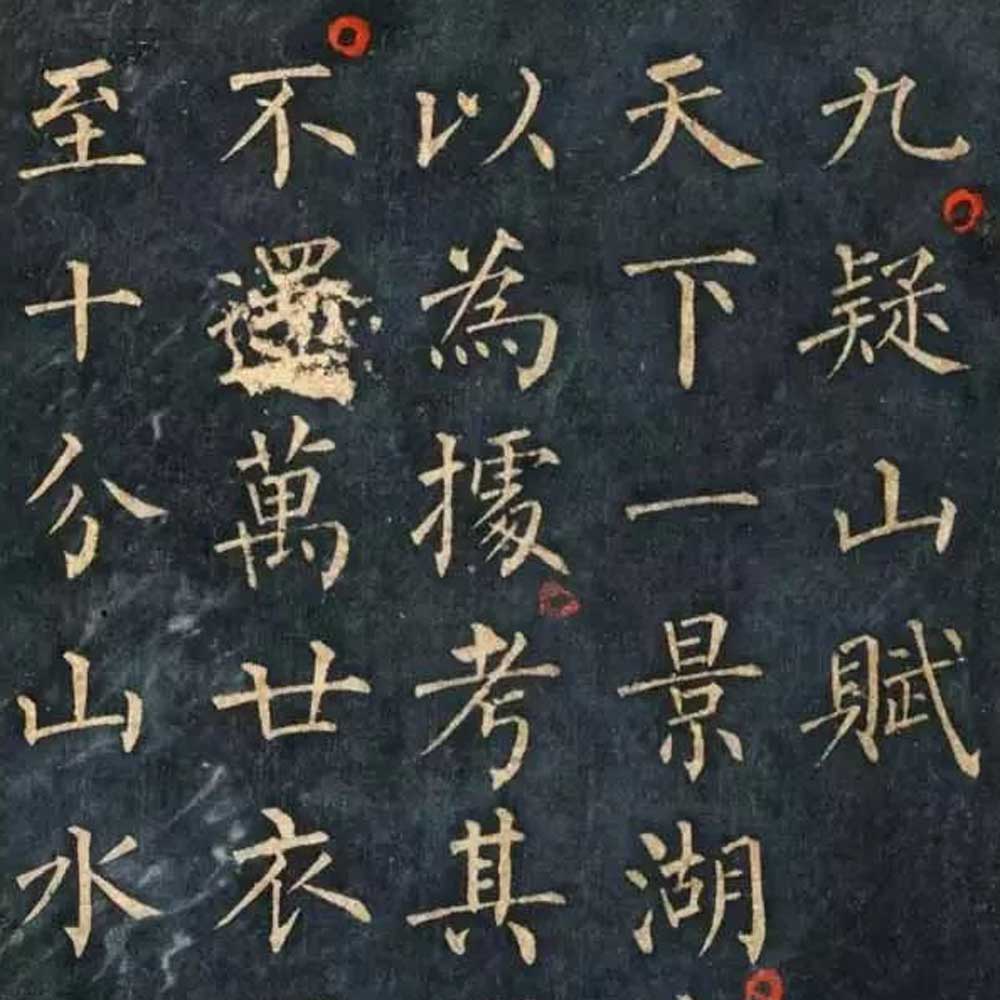 九疑山賦
天下一景湖
以為據考其
不還萬廿衣
至十分山水